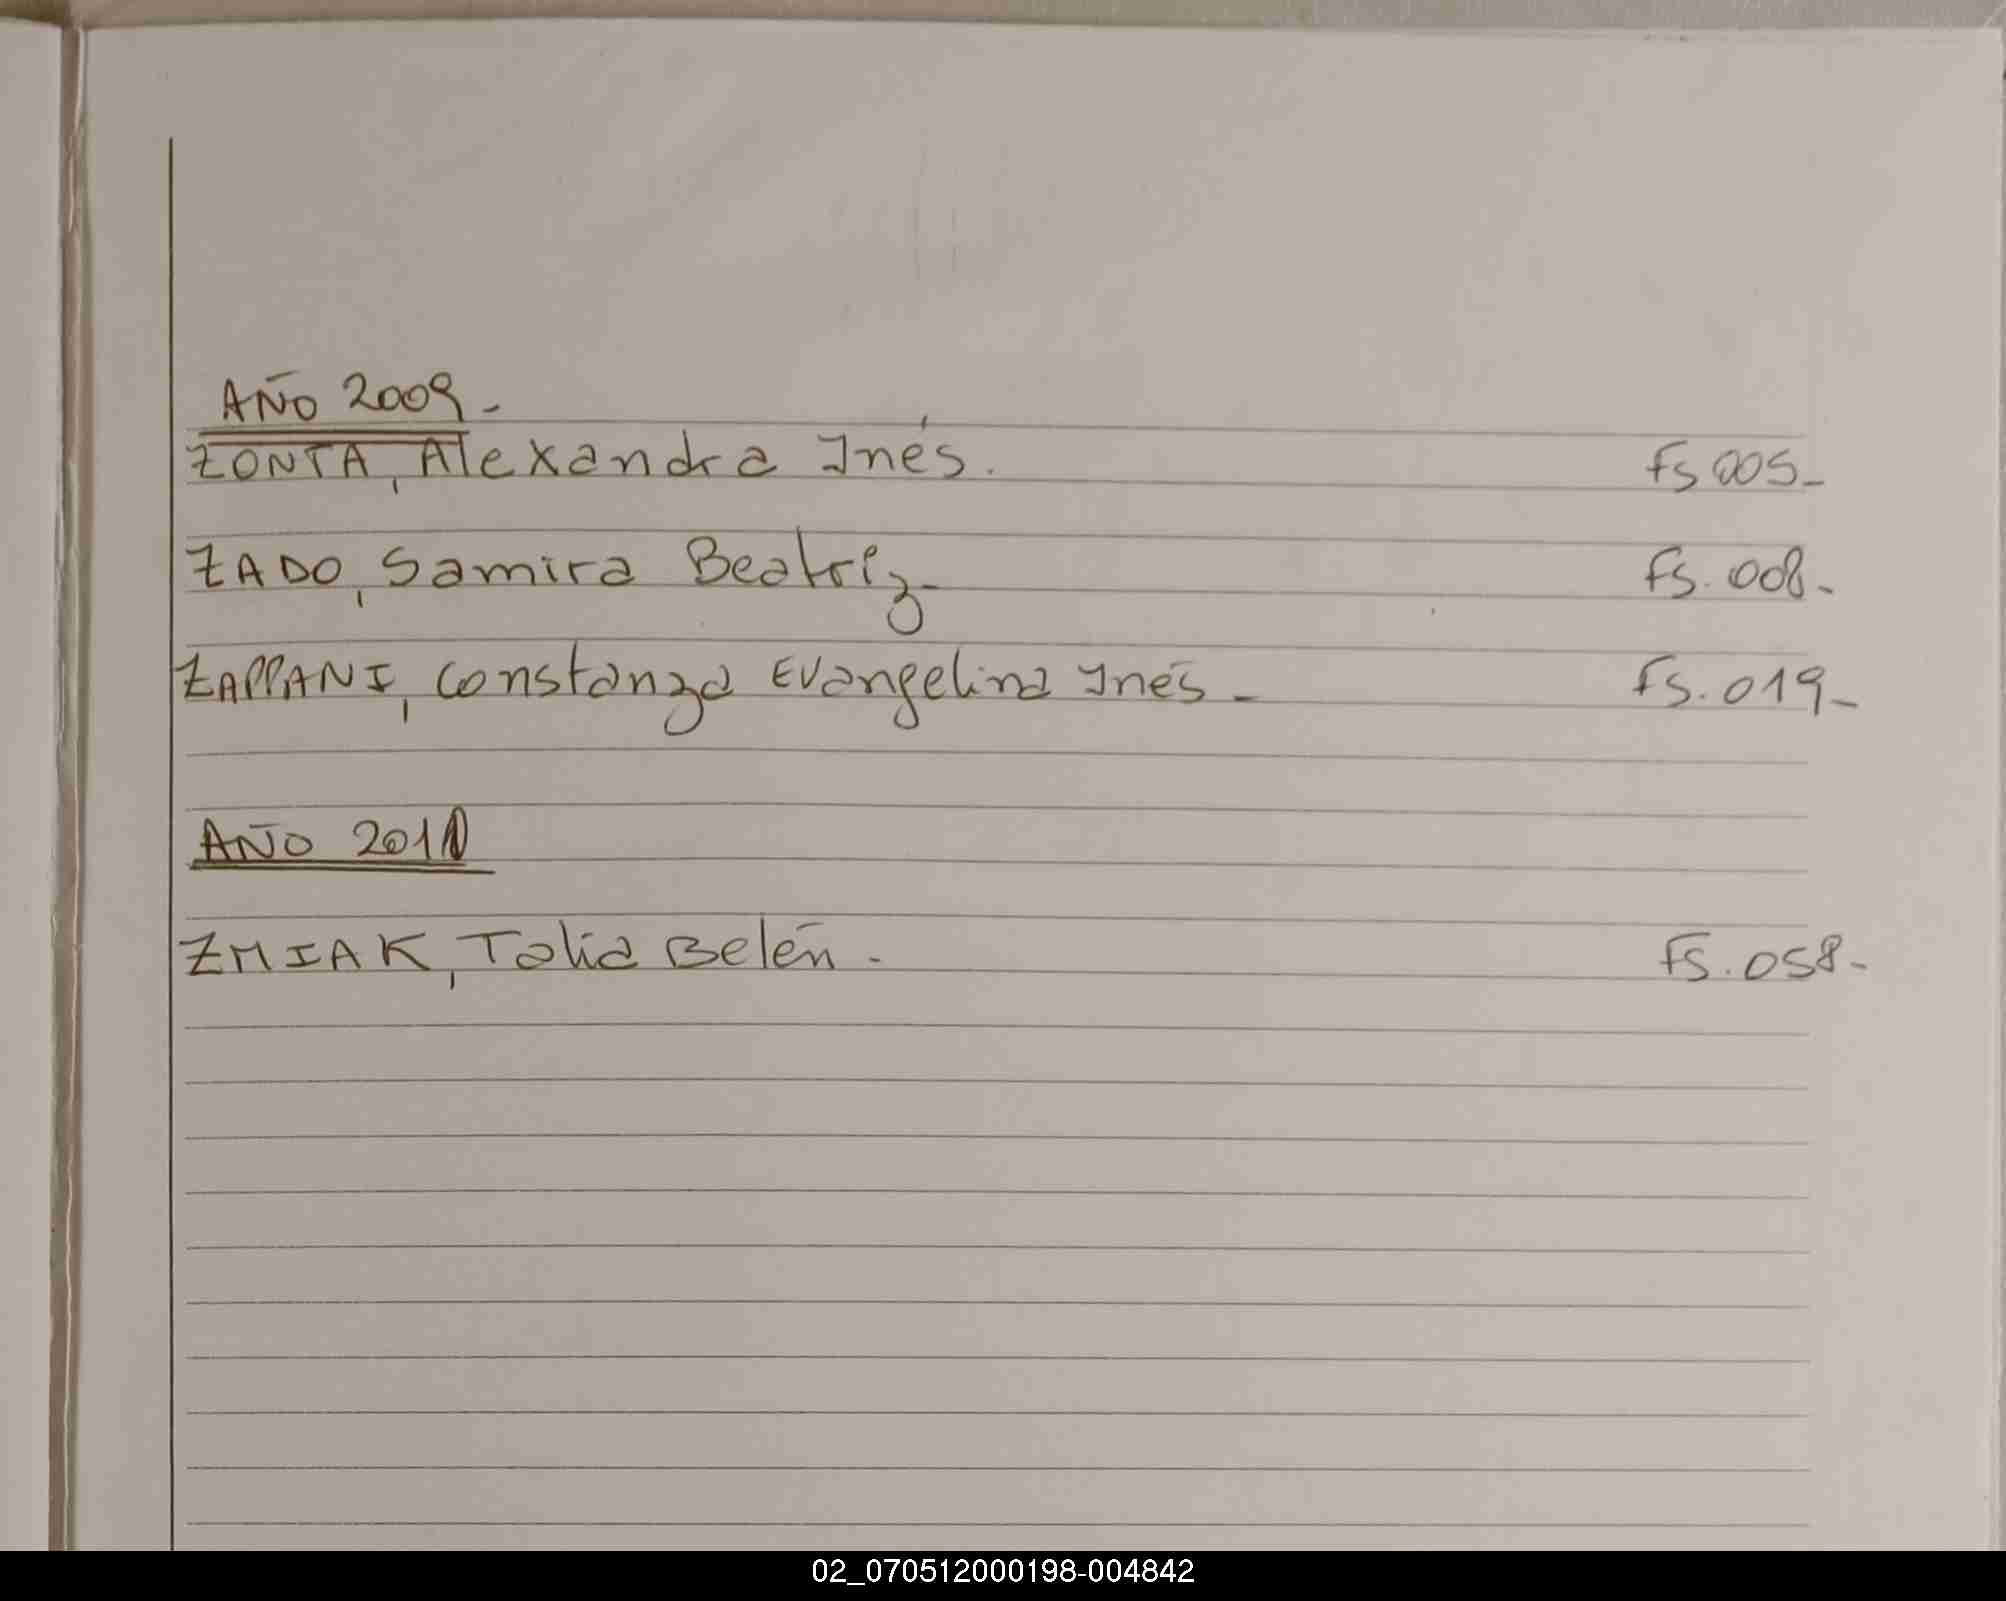 AÑO 2009-
ZONTA, Alexandra Inés. Fs 005-
ZADO, Samira Beatriz- Fs. 008-
ZAPPANI, Constanza Evangelina Inés- Fs. 019-
AÑO 2011
ZMIAK, Talia Belén- Fs. 058-
02_070512000198-004842